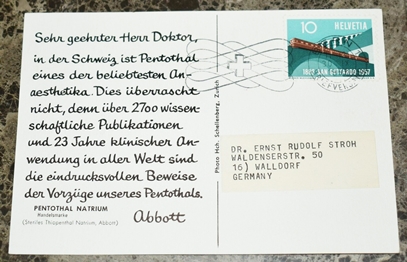 Sehr geehrter Herr Doktor,
in der Schweiz ist Pentothal
eines der beliebtesten An-
aesthetika. Dies überrascht
nicht, denn über 2700 wissen-
schaftliche Publikationen
und 23 Jahre klinischer An-
wendung in aller Welt sind
die eindrucksvollen Beweise
der Vorzüge unseres Pentothals.
Abbott
PENTOTHAL NATRIUM
Handelsmarke
(Steriles Thiopenthal Natrium, Abbott)
Photo Hch. Schellenberg, Zürich
10 HELVETIA
1882 SAN GOTTARDO 1957
DR. ERNST RUDOLF STROH
WALDENSERSTR. 50
16) WALLDORF
GERMANY